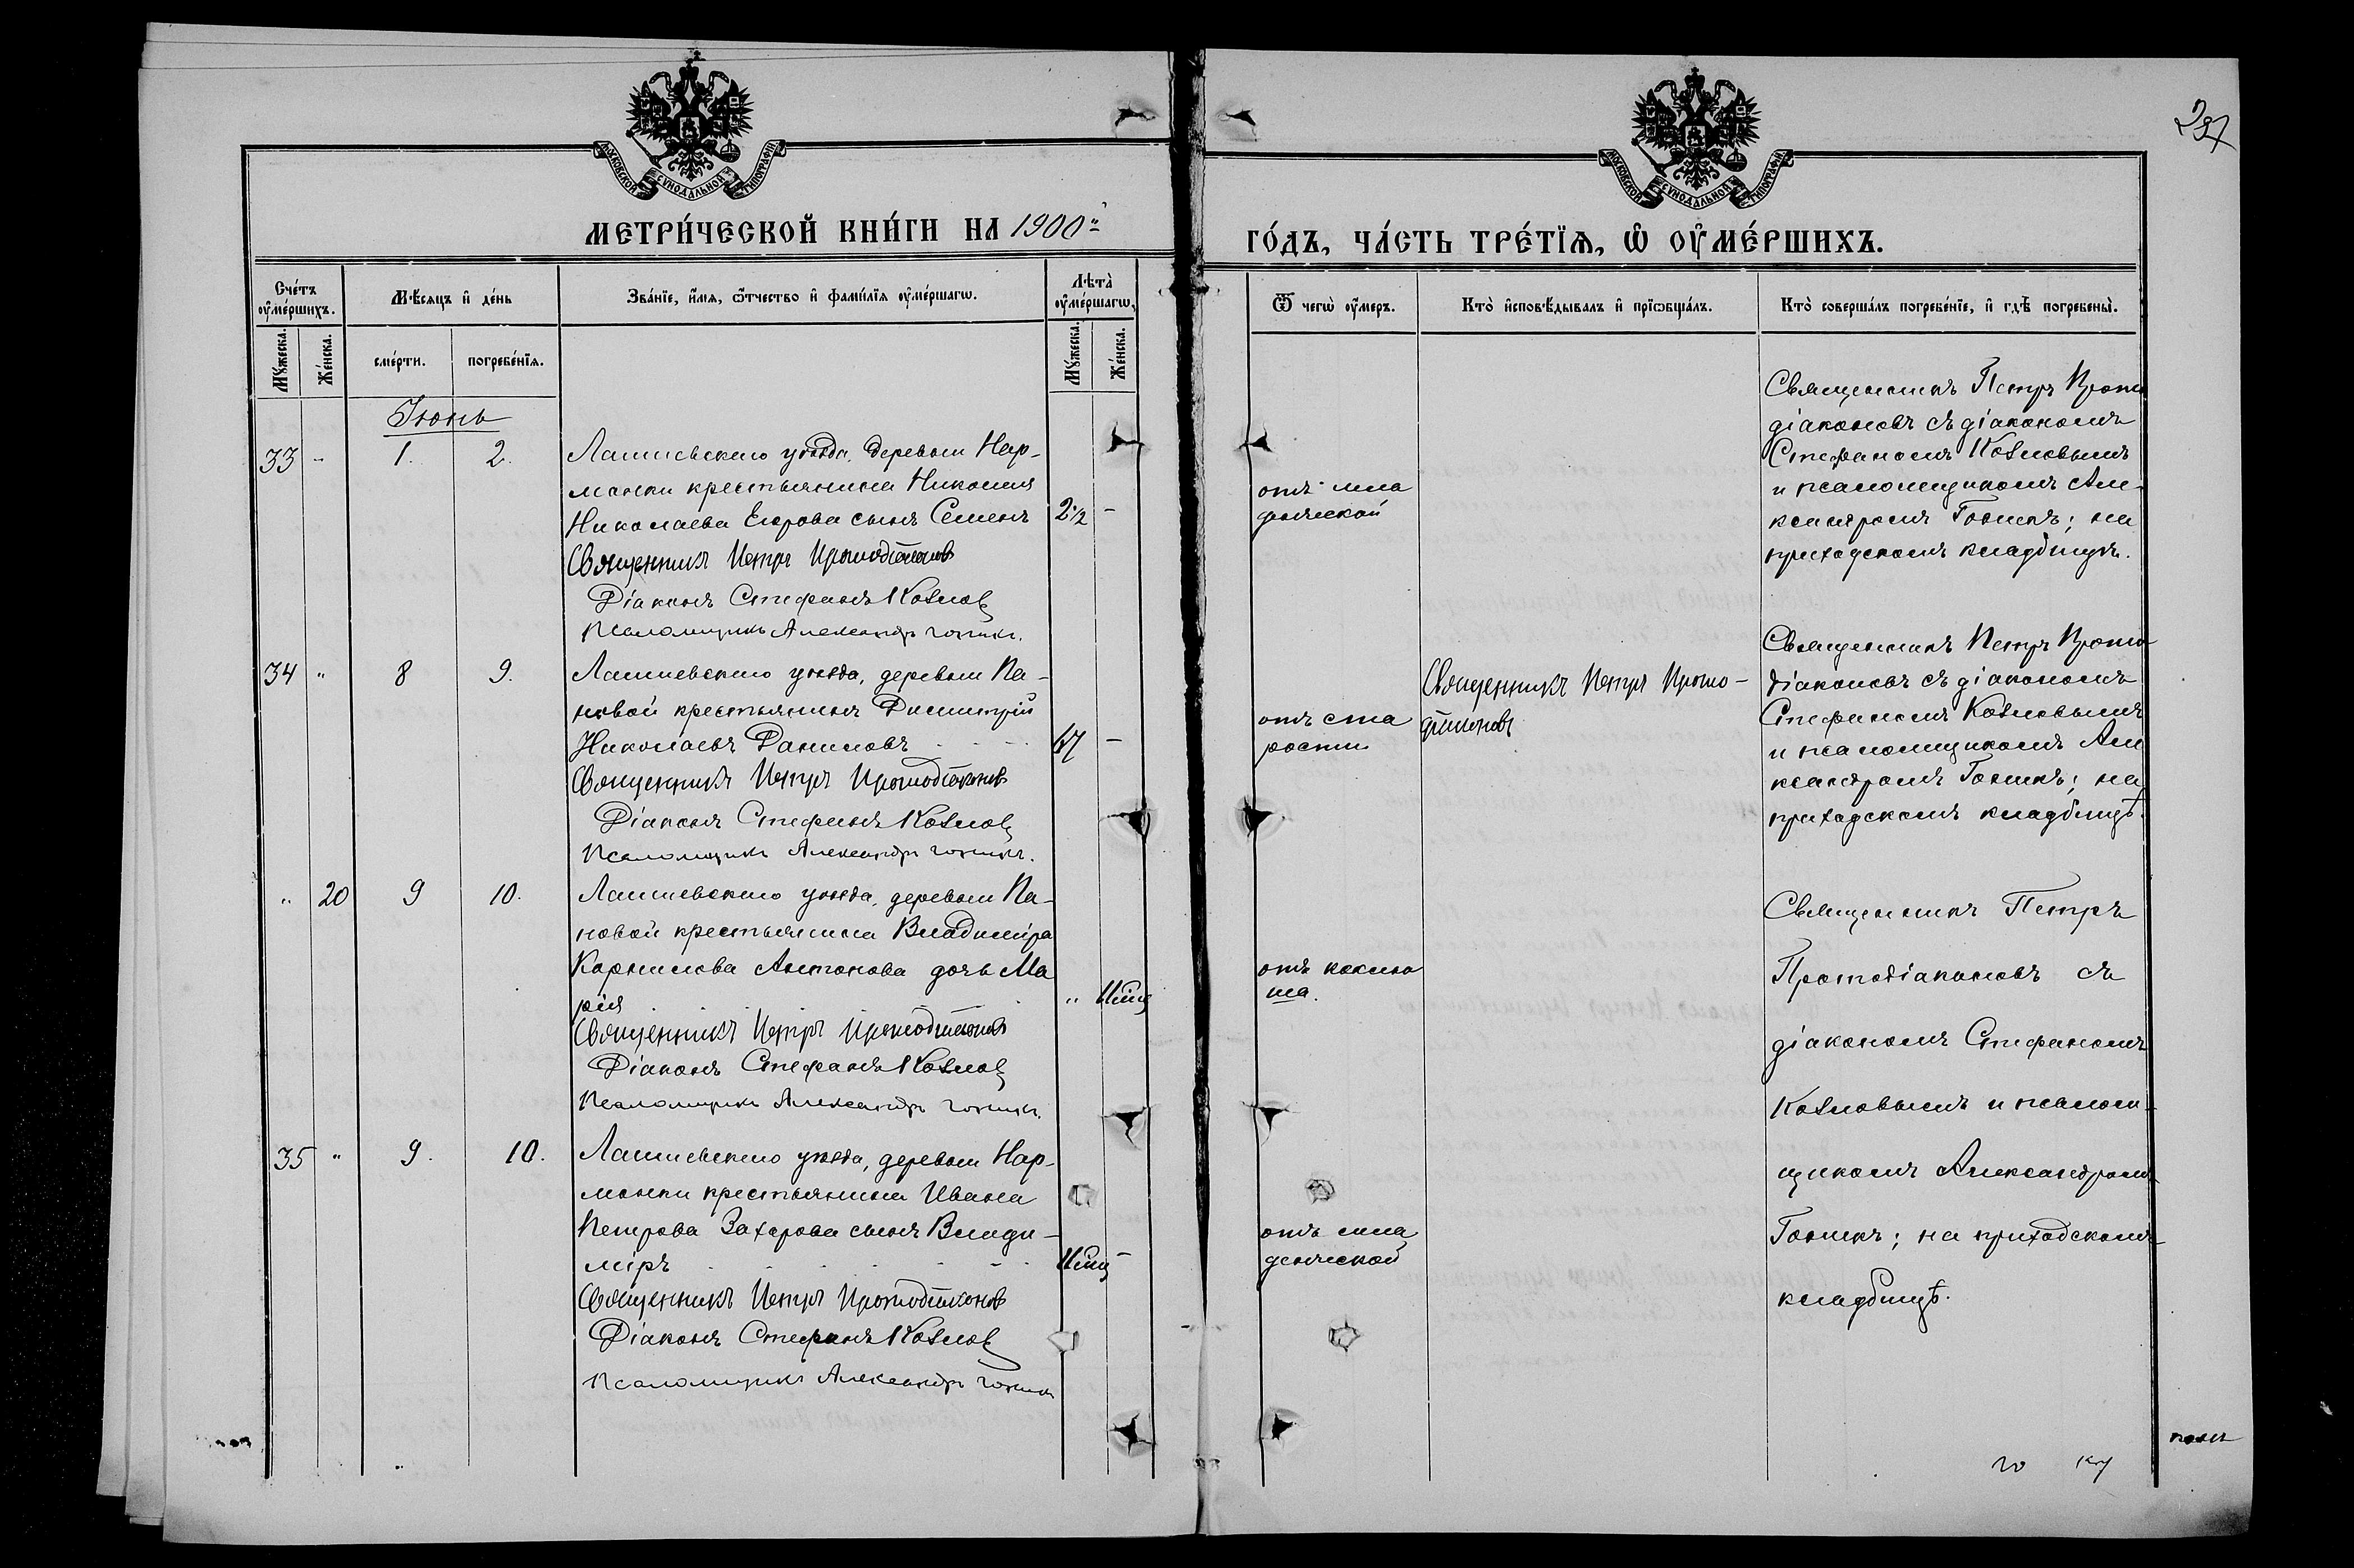 297
МОСКОВСКОЙ СѴНОДАЛЬНОЙ ТИПОГРАФІИ
МОСКОВСКОЙ СѴНОДАЛЬНОЙ ТИПОГРАФІИ
МЕТРИ́ЧЕСКОЙ КНИ́ГИ НА 1900
ГО́ДЪ, ЧА́СТЬ ТРЕ́ТІѦ, Ѡ҆ ОУ҆МЕ́РШИХЪ.
Сче́тъ оу҆ме́ршихъ.
Мѣ́сѧцъ и҆ де́нь
Зва́нїе, и҆́мѧ, ѻ҆́тчество и҆ фами́лїѧ оу҆ме́ршагѡ.
Лѣта̀ оу҆ме́ршагѡ.
Ѿ чегѡ̀ оу҆́меръ.
Кто̀ и҆сповѣ́дывалъ и҆ прїѡбща́лъ.
Кто̀ соверша́лъ погребе́нїе, и҆ гдѣ̀ погребены̀.
Мꙋ́жеска.
Же́нска.
сме́рти.
погребе́нїѧ.
Мꙋ́жеска.
Же́нска.
Іюнь
33 - 1. 2.
Лаишевскаго уѣзда, деревни Нар-
монки крестьянина Николая
Николаева Егорова сынъ Семенъ 2½ -
Священникъ Петръ Протодіаконовъ
Діаконъ Стефанъ Козловъ
Псаломщикъ Александръ Гонинъ.
отъ мла
денческой
Священникъ Петръ Прото
діаконовъ съ діакономъ
Стефаномъ Козловымъ
и псаломщикомъ Але-
ксандромъ; на
приходскомъ кладбищѣ.
34 " 8 9.
Лаишевскаго уѣзда, деревни Па-
новой крестьянинъ Димитрій
Николаевъ Даниловъ -
Священникъ Петръ Протодіаконовъ
Діаконъ Стефанъ Козловъ
Псаломщикъ Александръ
отъ ста
рости
Священникъ Петръ Прото-
діаконовъ
Священникъ Петръ Прото
діаконовъ съ діакономъ
Стефаномъ Козловымъ
и псаломщикомъ Але
ксандромъ; на
приходскомъ кладбищѣ.
" 20 9 10.
Лаишевскаго уѣзда, деревни Па-
новой крестьянина Владиміра
Корнилова Антонова дочь Ма
рія "
Священникъ Петръ Протодіаконовъ
Діаконъ Стефанъ Козловъ
Псаломщикъ Александръ
отъ коклю
ша.
Священникъ Петръ
Протодіаконовъ съ
діакономъ Стефаномъ
Козловымъ и псалом-
щикомъ Александромъ
на приходскомъ
кладбищѣ.
35 " 9. 10.
Лаишевскаго уѣзда, деревни Нар-
монки крестьянина Ивана
Петрова Захарова сынъ Влади-
міръ -
Священникъ Петръ Протодіаконовъ
Діаконъ Стефанъ Козловъ
Псаломщикъ Александръ
отъ мла
денческой